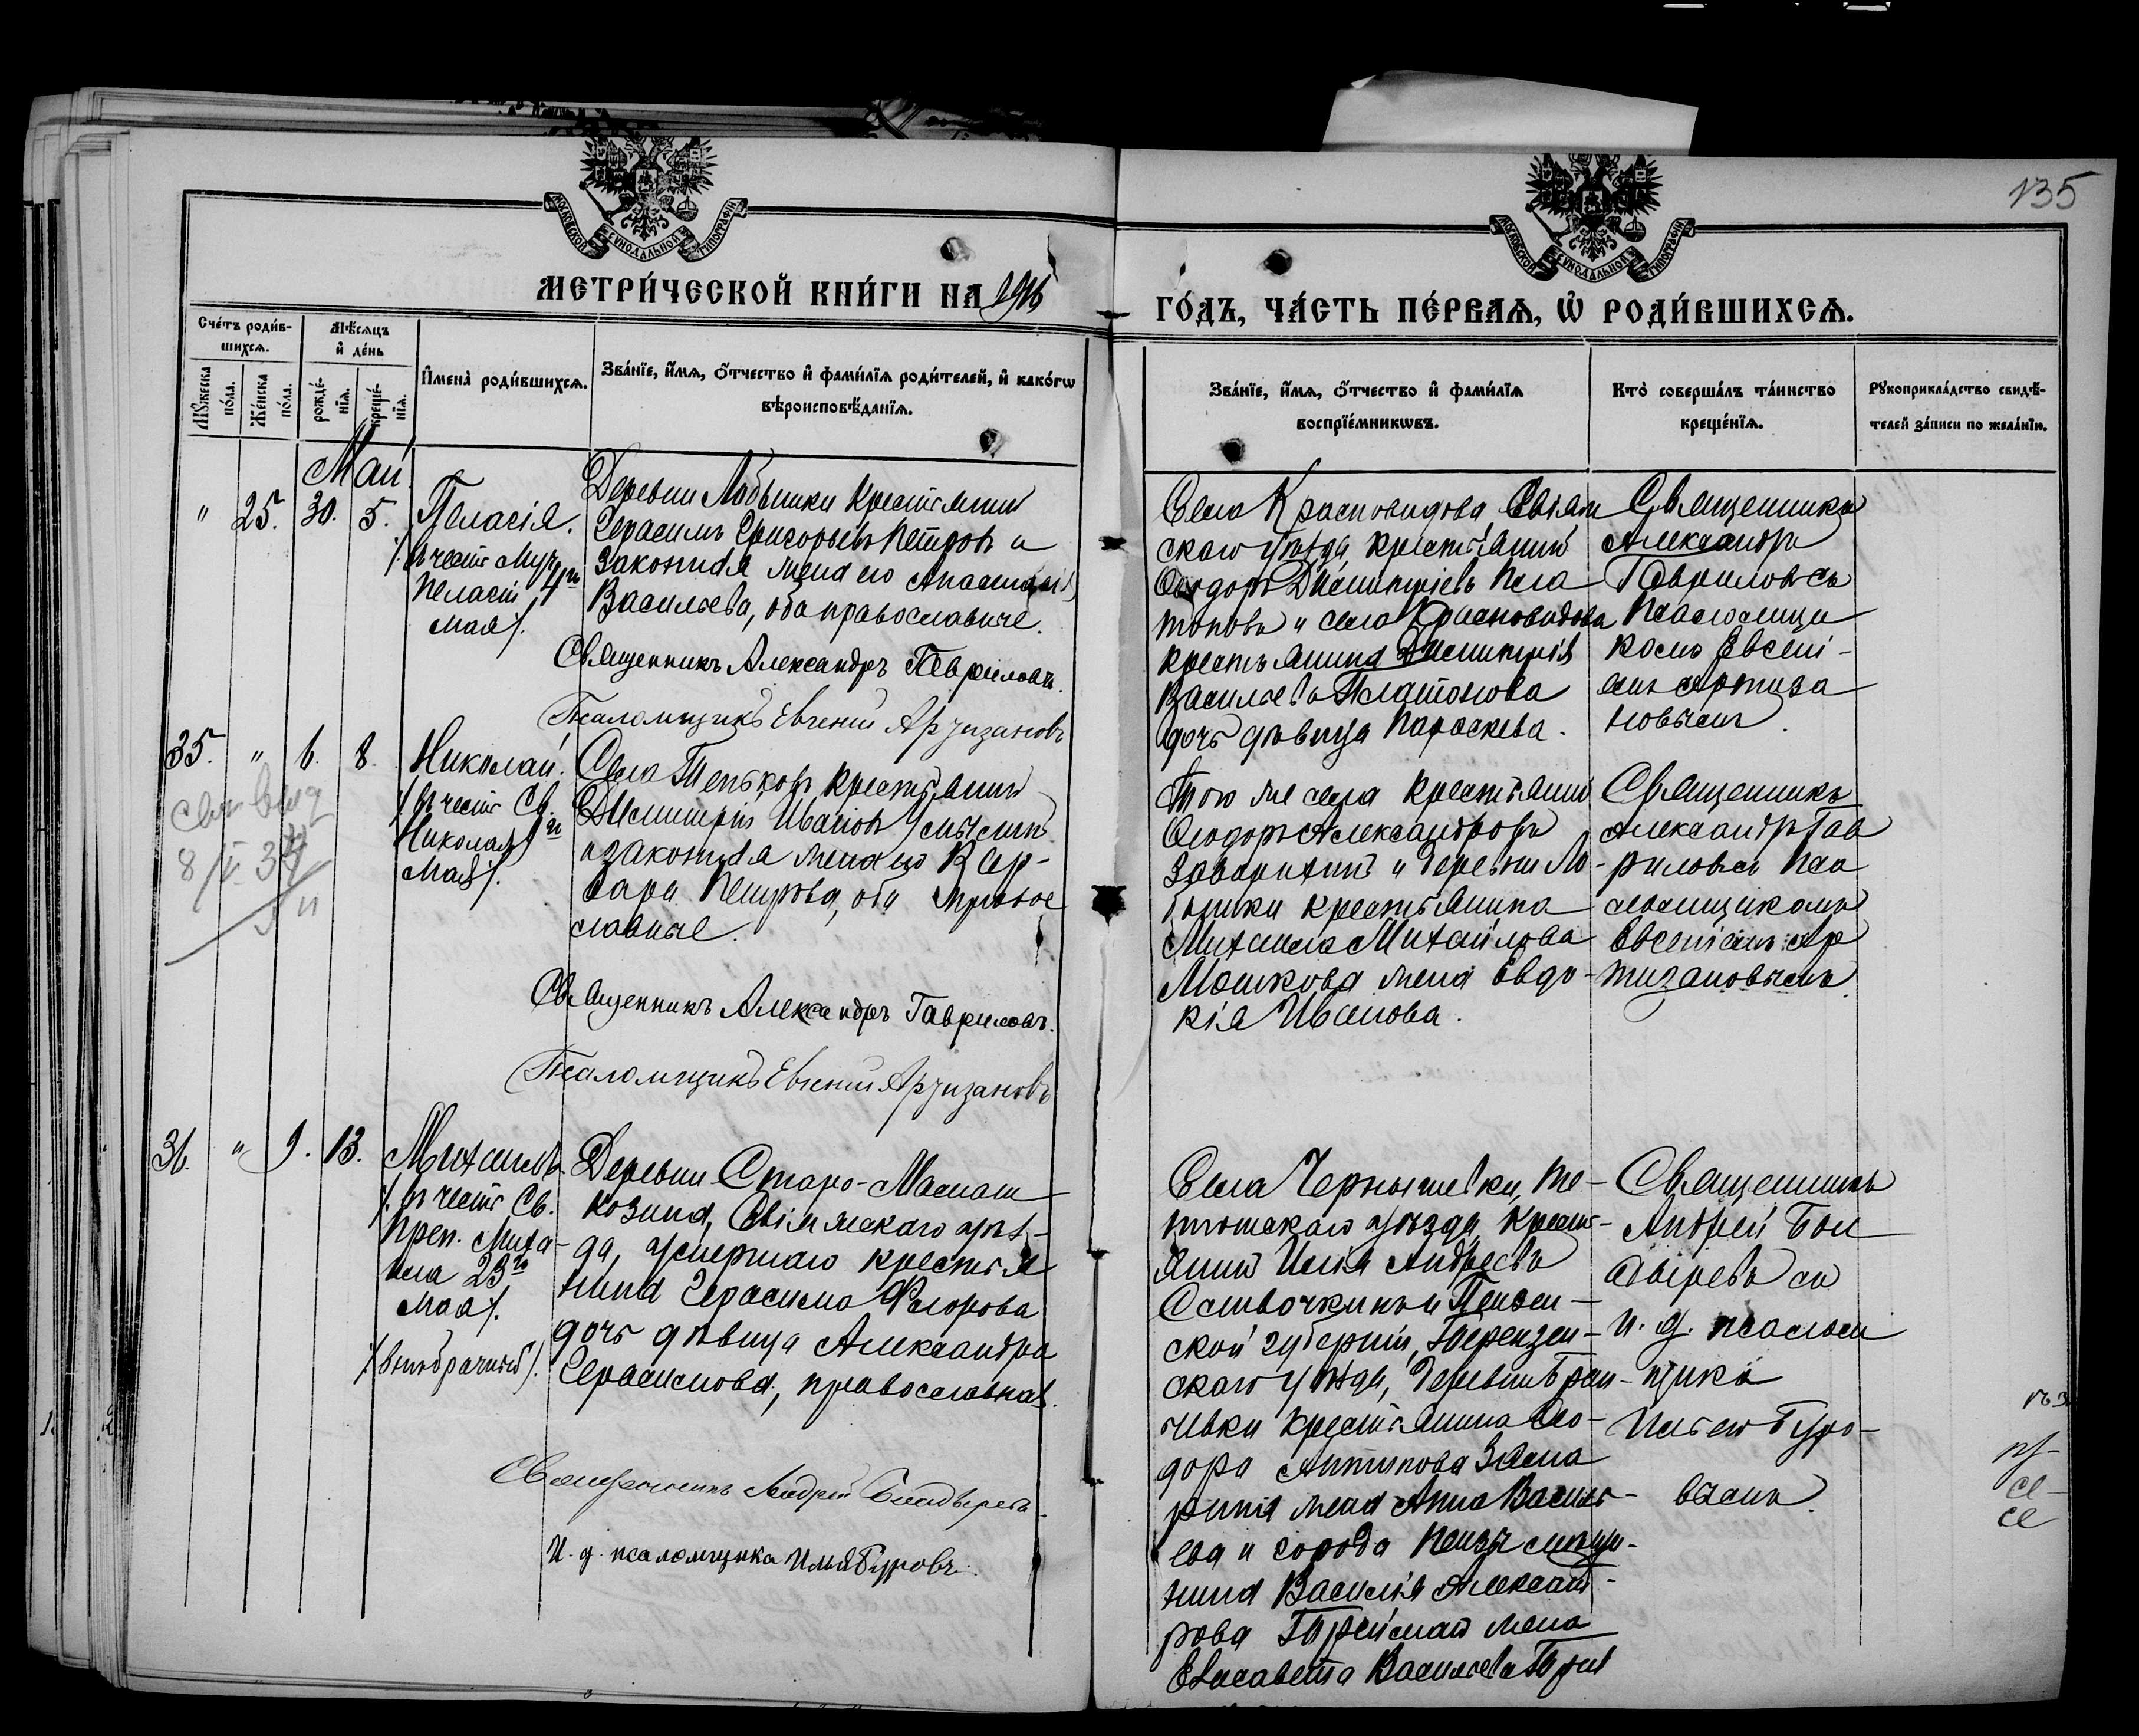 135
МОСКОВСКОЙ СѴНОДАЛЬНОЙ ТИПОГРАФІИ
МОСКОВСКОЙ СѴНОДАЛЬНОЙ ТИПОГРАФІИ
МЕТРИ́ЧЕСКОЙ КНИ́ГИ НА 1916 ГО́ДЪ, ЧА́СТЬ ПЕ́РВАѦ, Ѡ҆ РОДИ́ВШИХСѦ.
Сче́тъ роди́в-
шихсѧ.
Мѣ́сѧцъ
и҆ де́нь
Мꙋ́жеска
по́ла.
Же́нска
по́ла.
рожде́-
нїѧ.
креще́-
нїѧ.
И҆мена̀ роди́вшихсѧ.
Зва́нїе, и҆́мѧ, ѻ҆́тчество и҆ фами́лїѧ роди́телей, и҆ како́гѡ
вѣроисповѣ́данїѧ.
Зва́нїе, и҆́мѧ, ѻ҆́тчество и҆ фами́лїѧ
воспрїе́мникѡвъ.
Кто̀ соверша́лъ та́инство
креще́нїѧ.
Рꙋкоприкла́дство свидѣ́-
телей за́писи по жела́нїю.
Май.
" 25. 30. 5.
Пелагія.
/въ честь Муч.
Пелагіи 4го
мая/.
Деревни Лобышки крестьянинъ
Герасимъ Григорьевъ Петровъ и
законная жена его Анастасія
Васильева, оба православные.
Священникъ Александръ Гавриловъ.
Псаломщикъ Евгеній
Села Красновидова, Свіяж
скаго уѣзда, крестьянинъ
Ѳеодоръ Димитріевъ Пла
тоновъ и села Красновидова
крестьянина Димитрія
Васильева Платонова
дочь дѣвица Параскева.
Священникъ
Александръ
Гавриловъ съ
псаломщи
комъ Евгені-
емъ
новымъ.
35. " 6. 8.
Николай.
/въ честь Св.
Николая 9го
Мая/.
8/V 37
Села Теньковъ крестьянинъ
Димитрій Ивановъ
и законная жена его Вар-
вара Петрова, оба право
славные.
Священникъ Александръ Гавриловъ.
Псаломщикъ Евгеній
Того же села крестьянинъ
Ѳеодоръ Александровъ
и деревни Ло-
бышки крестьянина
Михаила Михайлова
Мошкова жена Евдо-
кія Иванова.
Священникъ
Александръ Гав
риловъ съ пса
ломщикомъ
Евгеніемъ Ар
тизановымъ.
36. " 9. 13.
Михаилъ.
/въ честь Св.
Преп. Миха-
ила 23го
мая/.
/внѣбрачный/.
Деревни Старо-
козина, Свіяжскаго уѣз-
да, умершаго крестья
нина Герасима Ѳедорова
дочь дѣвица Александра
Герасимова, православная.
Священникъ Андрей
И. д. псаломщика Илья Буровъ.
Села Чернышевки, Те-
тюшскаго уѣзда, кресть-
янинъ Илья Андреевъ
и Пензен-
ской губерніи,
скаго уѣзда, деревни
крестьянина Ѳео-
дора Антипова
жена Анна Василь-
ева и города Пензы мѣща-
нина Василія Александ-
рова жена
Елисавета Васильева
Священникъ
Андрей Бол
дыревъ съ
и. д. псалом
щика
Ильею Буро-
вымъ.